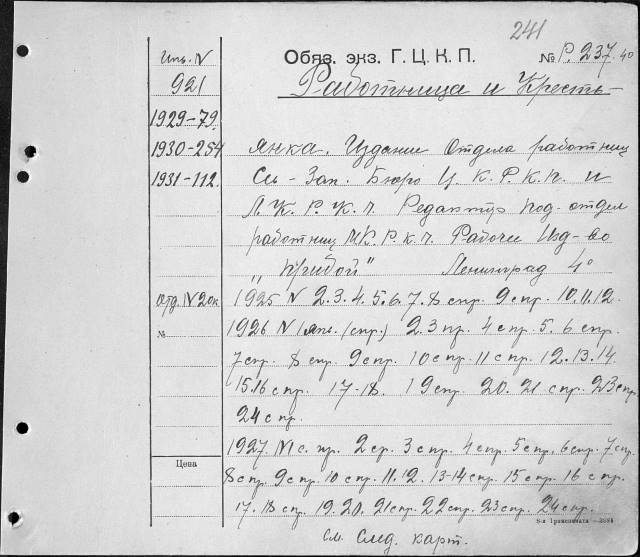 241
Обяз. экз. Г. Ц. К. П. № Р. 237.40
Инв. N
921
Работница и Кресть-
1929-79.
1930-254 янка. Издание Отдела работниц
1931-112. Сев-Зап. Бюро Ц. К. Р. К. П. и
Л. К. Р. К. П. Редактор Под-отдел
работниц МК. Р. К. П. Рабочее Изд-во
„Прибой" Ленинград 4°
Отд. N 20к. 1925 N 2. 3. 4. 5. 6. 7. 8 спр. 9 спр. 10. 11. 12.
№ 1926 N 1 янв. (спр.) 2. 3 пр. 4 спр. 5. 6 спр.
7 спр. 8 спр. 9 спр. 10 спр. 11 спр. 12. 13. 14.
15. 16 спр. 17-18. 19 спр. 20. 21 спр. 23 спр.
24 спр.
1927. N 1 с. пр. 2 ср. 3 спр. 4 спр. 5 спр. 6 спр. 7 спр.
Цена 8 спр. 9 спр. 10 спр. 11. 12. 13-14 спр. 15 спр. 16 спр.
17. 18 спр. 19. 20. 21 спр. 22 спр. 23 спр. 24 спр.
См. След. карт.